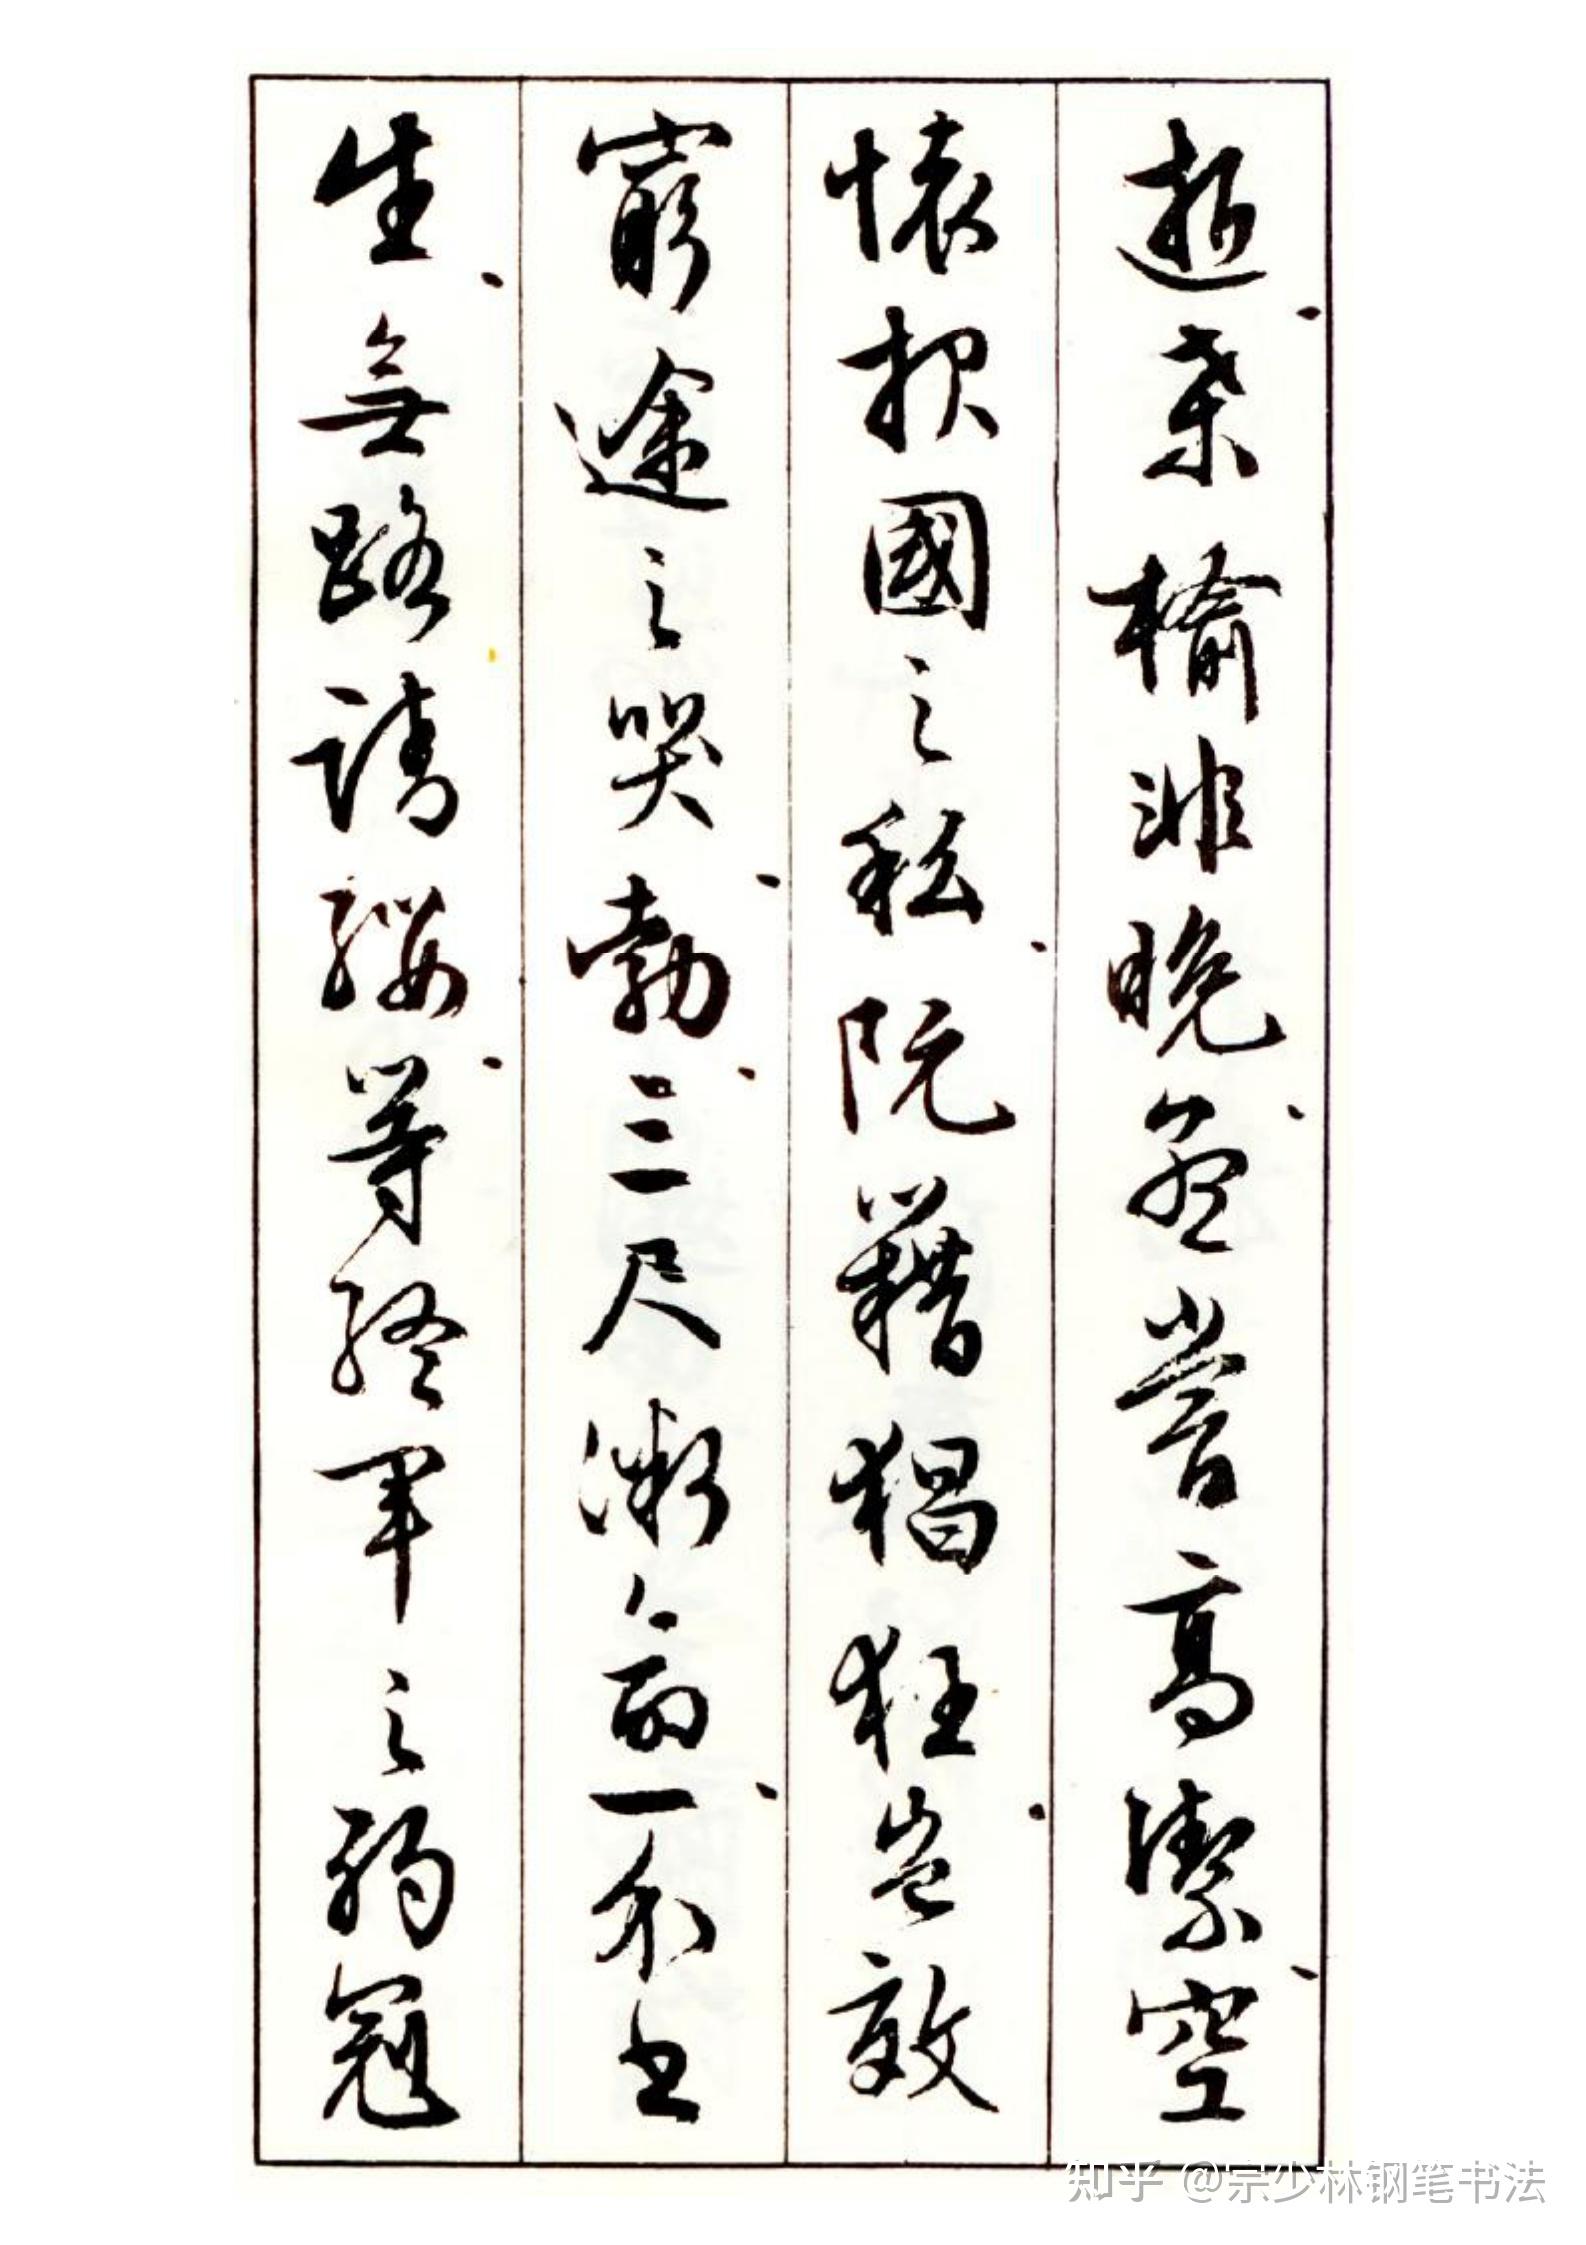 逝桑榆非晚孟嘗高潔空
懷報國之私阮籍猖狂豈效
窮途之哭勃三尺微命一介書
生無路請纓等終軍之弱冠
知乎 @宗少林钢笔书法